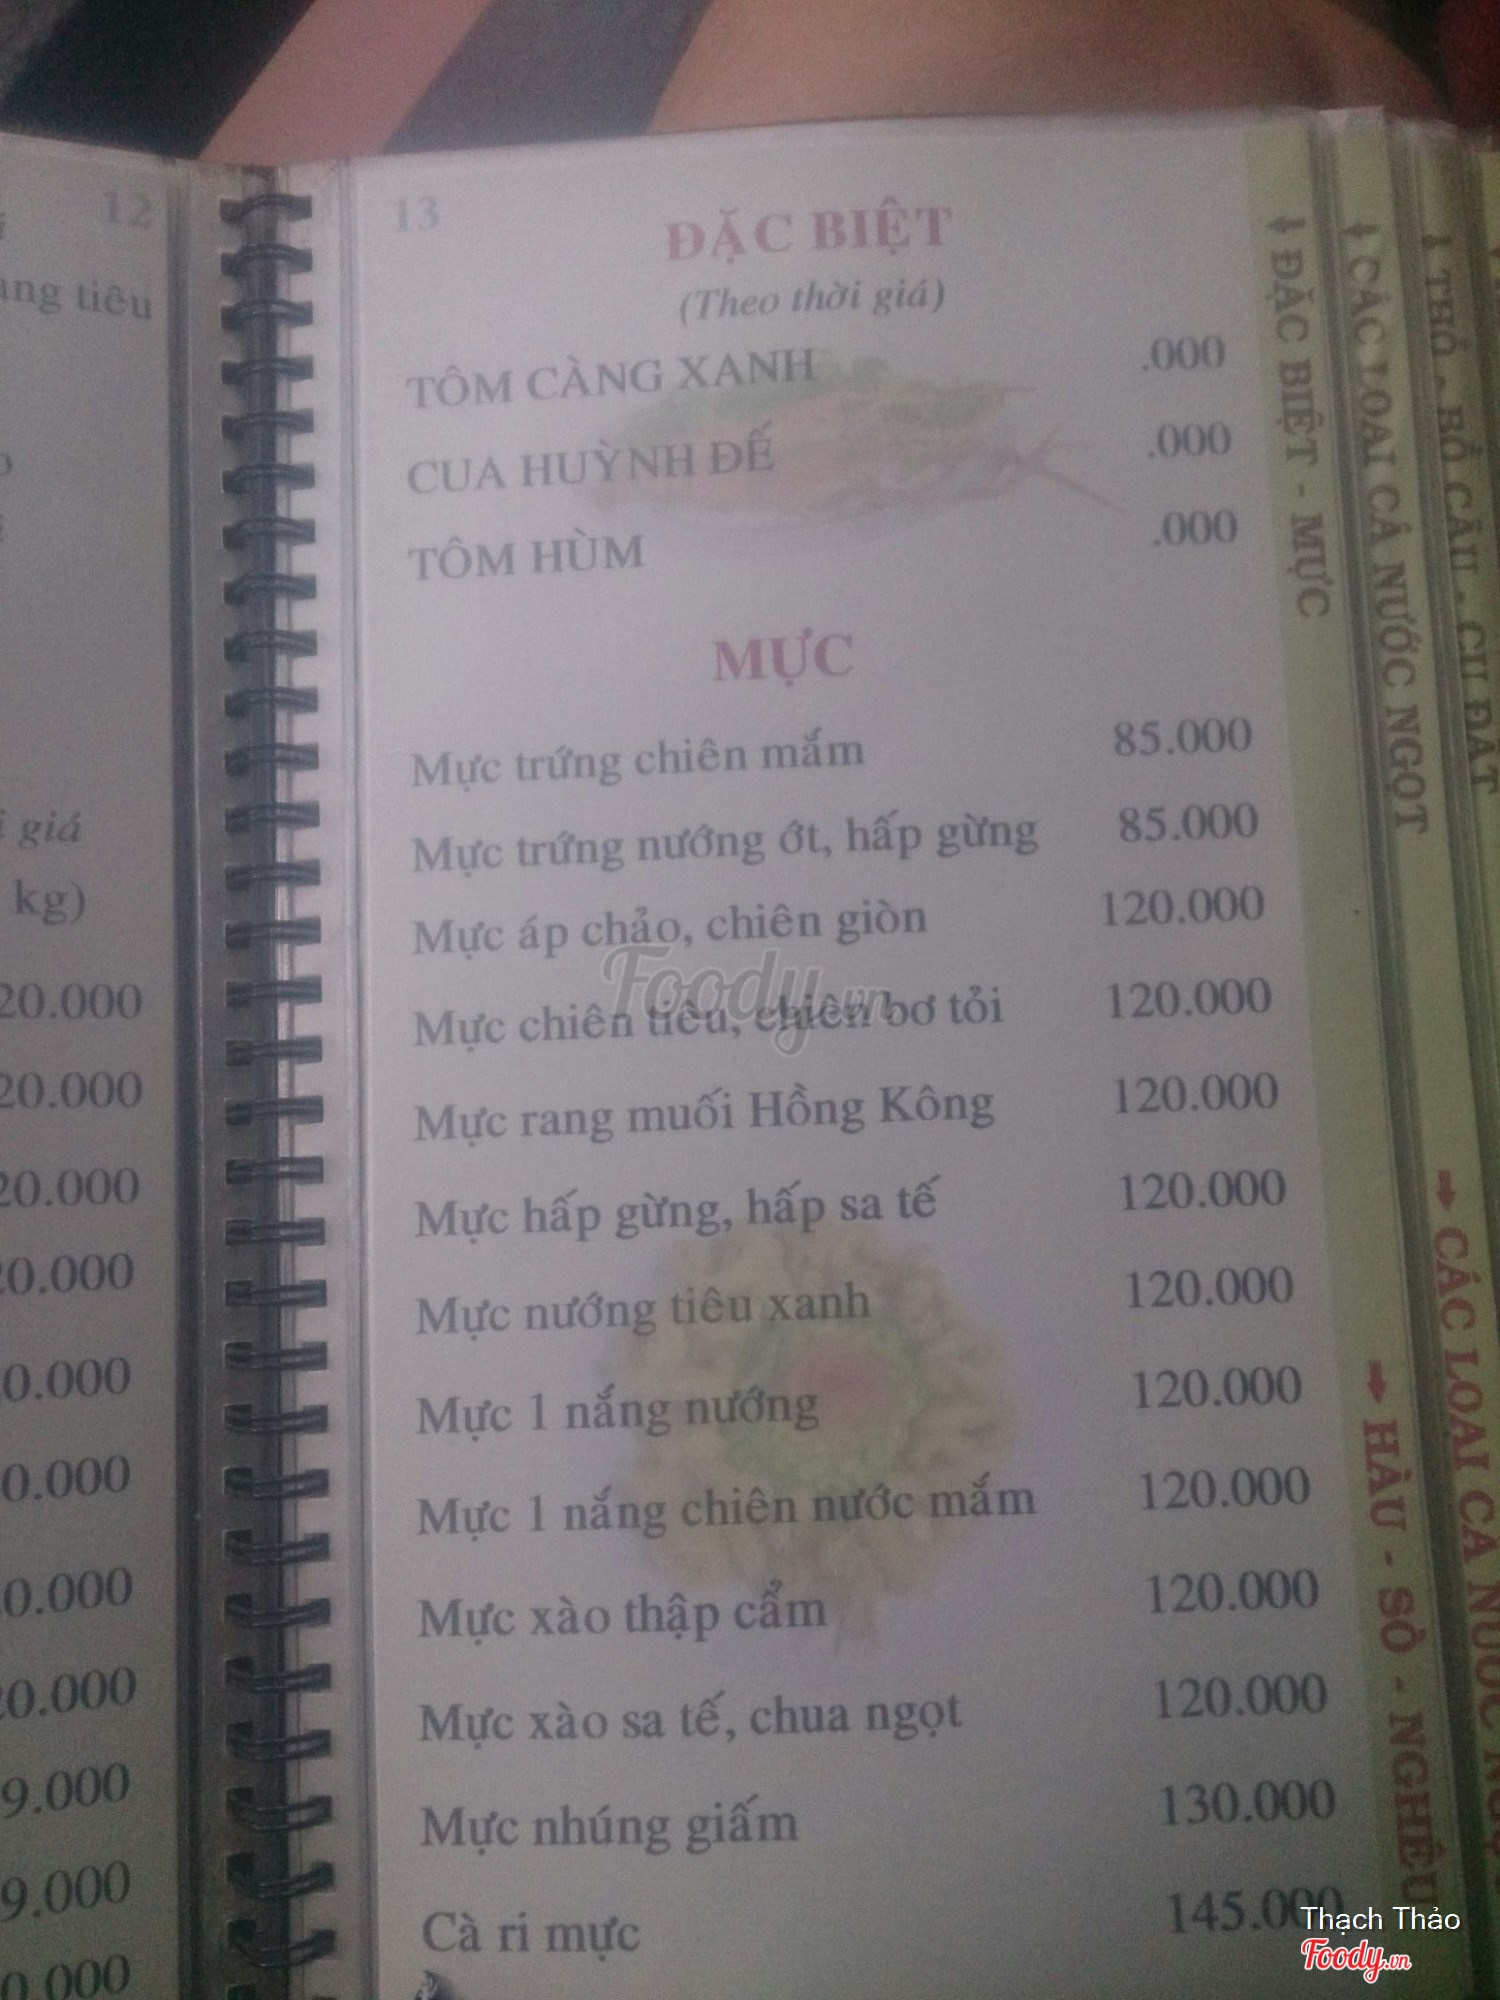 12
ng tiêu
giá
kg)
20.000
20.000
20.000
0.000
0.000
0.000
0.000
0.000
9.000
9.000
0.000
13
ĐẶC BIỆT
(Theo thời giá)
TÔM CÀNG XANH .000
CUA HUỲNH ĐẾ .000
TÔM HÙM .000
MỰC
Mực trứng chiên mắm 85.000
Mực trứng nướng ớt, hấp gừng 85.000
Mực áp chảo, chiên giòn 120.000
Mực chiên tiêu, chiên bơ tỏi 120.000
Mực rang muối Hồng Kông 120.000
Mực hấp gừng, hấp sa tế 120.000
Mực nướng tiêu xanh 120.000
Mực 1 nắng nướng 120.000
Mực 1 nắng chiên nước mắm 120.000
Mực xào thập cẩm 120.000
Mực xào sa tế, chua ngọt 120.000
Mực nhúng giấm 130.000
Cà ri mực 145.000
Foody.vn
ĐẶC BIỆT - MỰC
CÁC LOẠI CÁ NƯỚC NGỌT
HÀU - SÒ - NGHÊU
THỎ - BỒ CÂU - CU ĐẤT
CÁC LOẠI CÁ NƯỚC
Thạch Thảo
Foody.vn